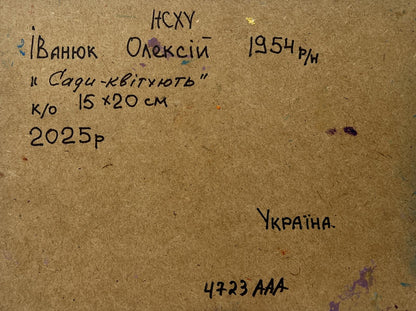 НСХУ
Іванюк Олексій 1954 р/н
"Сади-квітують"
к/о 15×20 см
2025р
Україна.
4723 ААА